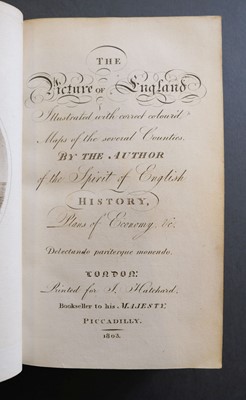 THE
Picture OF England
Illustrated with correct colour'd
Maps of the several Counties.
BY THE AUTHOR
of the Spirit of English
HISTORY,
Plans of Economy &c.
Delectando pariterque monendo.
LONDON:
Printed for J. Hatchard,
Bookseller to his MAJESTY,
PICCADILLY.
1803.